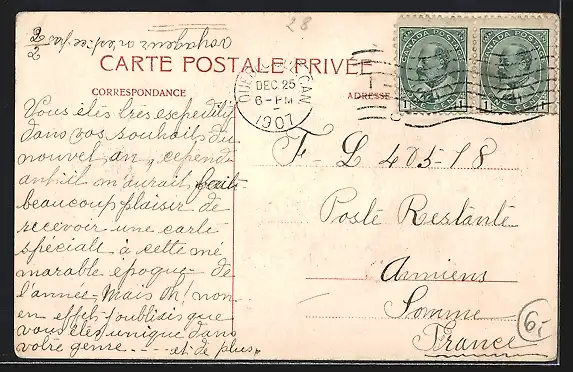 28
2/2
CARTE POSTALE PRIVÉE
CORRESPONDANCE
ADRESSE
QUEBEC CAN
DEC 25
6-PM
1907
CANADA POSTAGE
CANADA POSTAGE
1 ONE CENT 1
1 ONE CENT 1
Vous êtes très expeditif
dans vos souhait du
nouvel an, cepend
ant il m'aurait fait
beaucoup plaisir de
recevoir une carte
spéciale à cette mé
marable epoque de
l'année. Mais Oh! non
en effet j'oublisis que
vous êtes unique dans
votre genre ---- et de plus
F- L 405-18
Poste Restante
Amiens
Somme
France
6,-